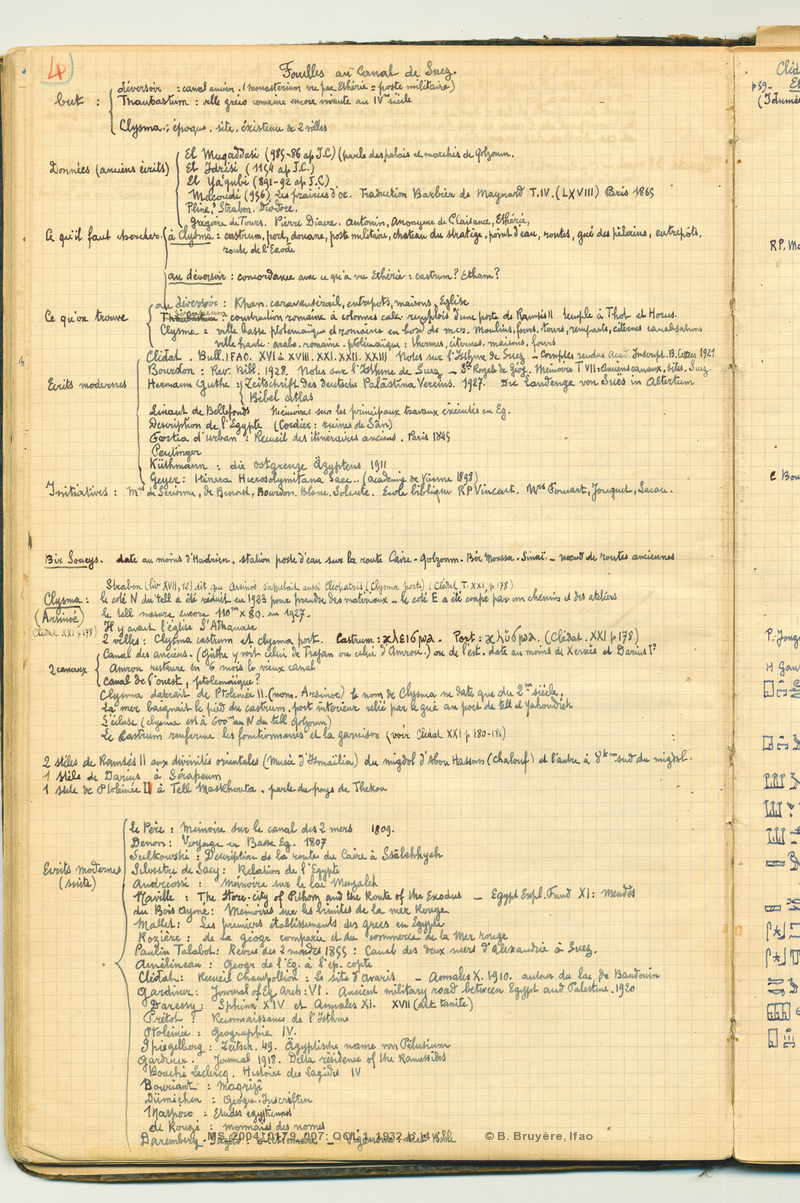 4
Fouilles au Canal de Suez.
but : déversoir : canal ancien. (monasterium vu par Ethérie = poste militaire)
Thaubastum : ville gréco romaine encore vivante au IVme siècle
Clysma : époque, site, existence de 2 villes
Données (anciens écrits)
El Muqaddasi (985-86 ap J.C) (parle des palais et marchés de Qolzoum.
El Idrisi (1154 ap J.C.)
El Ya'qubi (891-92 ap J.C)
Macoudi (956) Les prairies d'or. Traduction Barbier de Maynard T.IV. (LXVIII) Paris 1865
Pline, Strabon. Diodore.
Grégoire de Tours. Pierre Diacre. Antonin, Anonyme de Plaisance, Ethérie,
Ce qu'il faut chercher
à Clysma : castrum, port, douane, poste militaire, chateau du stratège, point d'eau, routes, gué des pèlerins, entrepôts,
route de l'Exode
au déversoir : concordance avec ce qu'a vu Ethérie : castrum? Etham?
Ce qu'on trouve
au déversoir : Khan. caravansérail, entrepôts, maisons, Eglise
construction romaine à colonnes avec remplois d'une porte de Ramsès II temple à Thot et Horus.
Clysma : ville basse ptolemaïque et romaine en bord de mer. Moulins, fours, tours, remparts, citernes canalisations
ville haute : arabe, romaine, ptolémaïque : thermes, citernes, maisons, fours
Ecrits modernes
Clédat. Bull. IFAO. XVI à XVIII. XXI. XXII. XXIII Notes sur l'Isthme de Suez - Comptes rendus Acad. Inscript. B. Lettres 1921
Bourdon : Rev. Bibl. 1928. Notes sur l'Isthme de Suez - Sté Royale de Géog. Mémoires T VII : Anciens canaux, sites, Suez.
Hermann Guthe : Zeitschrift des deutsche Palästina Vereins. 1927. Die Landenge von Suès in Altertum
Bibel atlas
Linant de Bellefonds Mémoires sur les principaux travaux exécutés en Eg.
Description de l'Egypte (Cordier : ruines de Sân)
Fortia d'urban : Recueil des itinéraires anciens. Paris 1845
Peutinger
Küthmann : die ostgrenze Ägyptens 1911
Geyer : Itinera Hierosolymitana Saec.. (academie de Vienne 1898)
Initiatives : Mrs de Serionne, de Benoist, Bourdon, Blanc, Solente. Ecole biblique RP Vincent. Mrs Foucart, Jouguet, Lacau.
Bir Soueys. date au moins d'Hadrien, station poste d'eau sur la route Caire-Qolzoum-Bir Moussa-Sinaï - nœud de routes anciennes
Strabon (liv XVII, 12) dit que Arsinoé s'appelait aussi Cléopatris (Clysma port) (Clédat T.XXI, p 178)
Clysma : le coté N du tell a été réduit en 1903 pour prendre des matériaux - le coté E a été coupé par un chemin et des ateliers
(Arsinoé) le tell mesure encore 110m x 80. en 1927.
Clédat XXI p 178) Il y avait l'église St Athanase
2 villes : Clysma castrum et clysma port. Castrum : Port : (Clédat. XXI p 178)
2 canaux
Canal des anciens. (Guthe y voit celui de Trajan ou celui d'Amrou.) ou de l'est. date au moins de Xerxès et Darius Ir
Amrou restaure en 6 mois le vieux canal
Canal de l'ouest, ptolemaïque?
Clysma daterait de Ptolemée II. (nom. Arsinoe) le nom de Clysma ne date que du 2me siècle.
La mer baignait le pied du castrum, port intérieur relié par le gué au port de tell el Yahoudieh
L'écluse (clysma est à 600m au N du tell Qolzoum)
Le Castrum renferme les fonctionnaires et la garnison (voir Clédat XXI p 180-181)
2 stèles de Ramsès II aux divinités orientales (Musée d'Ismaïlia) du migdol d'Abou Hassan (chalouf) et l'autre à 8km sud du migdol.
1 stèle de Darius à Sérapeum
1 stèle de Ptolémée II à Tell Maskhouta. parle du pays de Thekou
Ecrits modernes (suite)
Le Père : Memoire sur le canal des 2 mers 1809.
Denon : Voyage en Basse Eg. 1807
Sulkowski : Description de la route du Caire à Ssalehhyeh
Silvestre de Sacy : Relation de l'Egypte
Andréossi : Mémoire sur le lac Menzaleh
Naville : The Store-city of Pithom and the Route of the Exodus - Egypt Expl. Fund XI : Mendès
du Bois Aymé : Mémoires sur les limites de la mer Rouge
Mallet : Les premiers établissements des grecs en Egypte
Rozière : de la géogr comparée et du commerce de la Mer rouge
Paulin Talabot : Revue des 2 mondes 1855 : Canal des deux mers d'Alexandrie à Suez.
Amélineau : Géogr de l'Eg. à l'ép. copte
Clédat : Recueil Champollion : le site d'Avaris - Annales X. 1910. autour du lac de Baudouin
Gardiner : Journal of Eg. Arch : VI. Ancient military road between Egypt and Palestine. 1920
Daressy : Sphinx XIV et Annales XI. XVII (art tanite)
Prétot ? Reconnaissance de l'Isthme
Ptolémée : Geographie IV.
Spiegelberg : Zeitsch. 49. Ägyptische name von Pelusium
Gardiner. Journal 1918. Delta résidence of the Ramessides
Bouché Leclercq. Histoire des Lagides IV
Bouriant : Maqrizi
Dümichen : Geogr. Inschriften
Maspero : Etudes egyptiennes
de Rougé : monnaies des nomes
Daremberg
MS_2004_0179_007
© B. Bruyère, Ifao
Cléd
p 59-
(Idumée